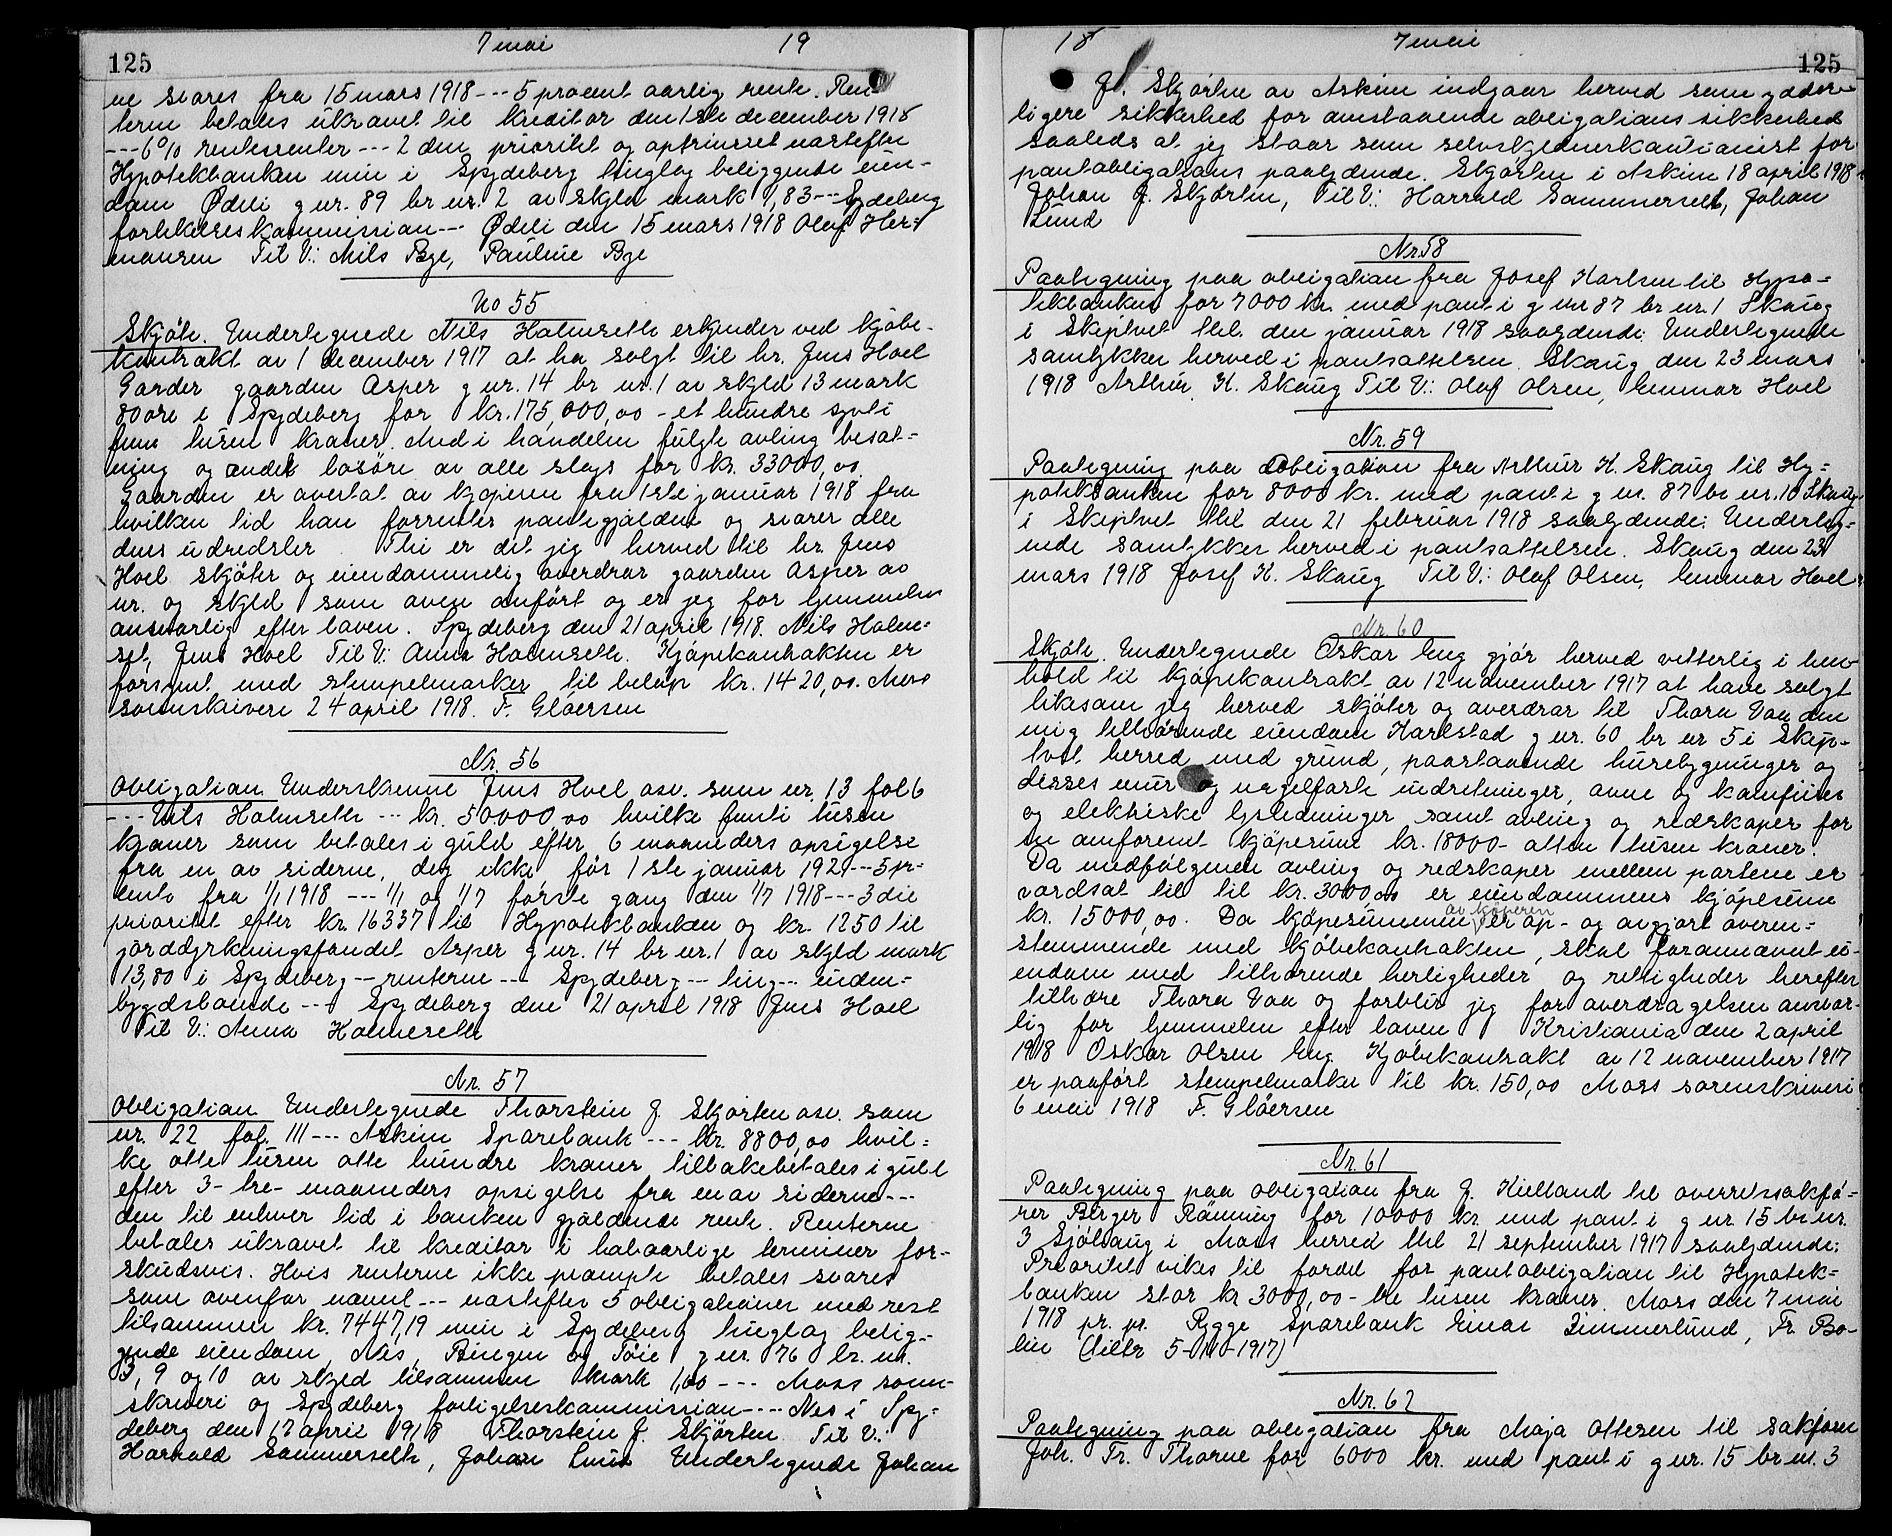 125 7 mai 19
ne svares fra 15 mars 1918 --- 5 procent aarlig rente. Ren
terne betales ukrævet til kreditor den 1ste december 1918
--- 6% rentesrenter --- 2 den prioritet og optrinsret næstefter
Hypotekbanken min i Spydeberg tinglag beliggende eien-
dom Ødeli g nr. 89 br nr. 2 av skyld mark 1,83 --- Spydeberg
forlikelseskommission --- Ødeli den 15 mars 1918 Olaf Her-
mansen Til V.: Nils Bye, Pauline Bye
No 55
Skjöte. Undertegnede Nils Holmseth erkjender ved kjöbe-
kontrakt av 1 december 1917 at ha solgt til hr. Jens Hoel
Garder gaarden Asper g nr. 14 br nr. 1 av skyld 13 mark
80 öre i Spydeberg for kr. 175,000,00 - et hundre sytti
fem tusen kroner. Med i handelen fulgte avling besæt-
ning og andet lösöre av alle slags for kr. 33000,00
Gaarden er overtat av kjöperen fra 1ste januar 1918 fra
hvilken tid han forrenter pantegjælden og svarer alle
dens udredsler. Thi er det jeg herved til hr. Jens
Hoel skjöter og eiendommelig overdrar gaarden Asper av
nr. og skyld som oven anfört og er jeg for hjemmelen
ansvarlig efter loven. Spydeberg den 21 april 1918. Nils Holm-
set, Jens Hoel Til V: Anna Holmseth. Kjöpekontrakten er
forsynt med stempelmærker til belöp kr. 1420,00. Moss
sorenskriveri 24 april 1918. F. Glöersen
Nr. 56
Obligation Underskrevne Jens Hoel osv. som nr. 13 fol 6
--- Nils Holmseth --- kr. 50000,00 hvilke femti tusen
kroner som betales i guld efter 6 maaneders opsigelse
fra en av siderne, dog ikke för 1ste januar 1921 --- 5 pr-
cents fra 1/1 1918 --- 1/1 og 1/7 förste gang den 1/7 1918 --- 3 die
prioritet efter kr. 16337 til Hypotekbanken og kr. 1250 til
jorddyrkningsfondet Asper g nr. 14 br nr. 1 av skyld mark
13,80 i Spydeberg --- renterne --- Spydeberg --- ting --- uden-
bygdsboende --- Spydeberg den 21 april 1918 Jens Hoel
Til V.: Anna Holmseth
Nr. 57
Obligation Undertegnede Thorstein J. Skjörten osv. som
nr. 22 fol. 111 --- Askim Sparebank --- kr. 8800,00 hvil-
ke otte tusen otte hundre kroner tilbakebetales i guld
efter 3 - tre - maaneders opsigelse fra en av siderne ---
den til enhver tid i banken gjældende rente. Renterne
betales ukrævet til kreditor i halvaarlige terminer for-
skudsvis. Hvis renterne ikke prompte betales svares
som ovenfor nævnt --- næstefter 5 obligationer med rest
tilsammen kr. 7447,19 min i Spydeberg tinglag belig-
gende eiendom Nes, Bingen og Töie g nr. 76 br. nr.
3, 9 og 10 av skyld tilsammen mark 1,60 --- Moss soren-
skriveri og Spydeberg forligelseskommission --- Nes i Spy-
deberg den 17 april 1918 Thorstein J. Skjörten Til V.:
Harald Sommerseth, Johan Lund Undertegnede Johan
18 7 mai 125
J. Skjörten av Askim indgaar herved som yderi-
ligere sikkerhed for omstaaende obligations sikkerhed
saaledes at jeg staar som selvskyldnerkautionist for
pantobligations paalydende. Skjörten i Askim 18 april 1918
Johan J. Skjörten, Til V.: Harald Sommerseth, Johan
Lund
Nr. 58
Paategning paa obligation fra Josef Karlsen til Hypo-
tekbanken for 7000 kr. med pant i g nr 87 br nr. 1 Skaug
i Skiptvet ttel. den januar 1918 saalydende: Undertegnede
samtykker herved i pantsættelsen. Skaug den 23 mars
1918 Arthur K. Skaug Til V.: Olaf Olsen, Gunnar Hoel
Nr. 59
Paategning paa obligation fra Arthur K. Skaug til Hy-
potekbanken for 8000 kr. med pant i g nr. 87 br nr. 10 Skaug
i Skiptvet ttel den 21 februar 1918 saalydende: Underteg-
nede samtykker herved i pantsættelsen. Skaug den 23
mars 1918 Josef K. Skaug Til V.: Olaf Olsen, Gunnar Hoel
Nr. 60
Skjöte. Undertegnede Oskar Eng gjör herved vitterlig i hen-
hold til kjöpekontrakt av 12 november 1917 at have solgt
liksom jeg herved skjöter og overdrar til Thora Vaa den
mig tilhörende eiendom Karlstad g nr. 60 br nr 5 i Skip-
tvet herred med grund, paastaaende husebygninger og
disses mur og nagelfaste indretninger, ovne og komfurer
og elektriske lysledninger samt avling og redskaper for
en omforent kjöpesum kr. 18000 - atten tusen kroner.
Da medfölgende avling og redskaper mellem parterne er
værdsat til til kr. 3000,00 er eiendommens kjöpesum
kr. 15000,00. Da kjöpesummen av köperen er op- og avgjort overen-
stemmende med kjöbekontrakten, skal forannævnte ei-
endom med tilhörende herligheder og rettigheder herefter
tilhöre Thora Vaa og forblir jeg for overdragelsen ansvar-
lig for hjemmelen efter loven Kristiania den 2 april
1918 Oskar Olsen Eng. Kjöbekontrakt av 12 november 1917
er paafört stempelmærker til kr. 150,00 Moss sorenskriveri
6 mai 1918 F. Glöersen
Nr. 61
Paategning paa obligation fra J. Kielland til overretssakfö-
rer Birger Rönning for 10000 kr. med pant i g nr. 15 br nr.
3 Sjöhaug i Moss herred ttel 21 september 1917 saalydende:
Prioritet vikes til fordel for pantobligation til Hypotek-
banken stor kr 3000,00 - tre tusen kroner. Moss den 7 mai
1918 pr. pr. Rygge Sparebank Einar Zimmerlund, Fr. Bo-
lin
Nr. 62
Paategning paa obligation fra Maja Ottersen til sakförer
Joh. Fr. Thorne for 6000 kr. med pant i g nr. 15 br nr. 3